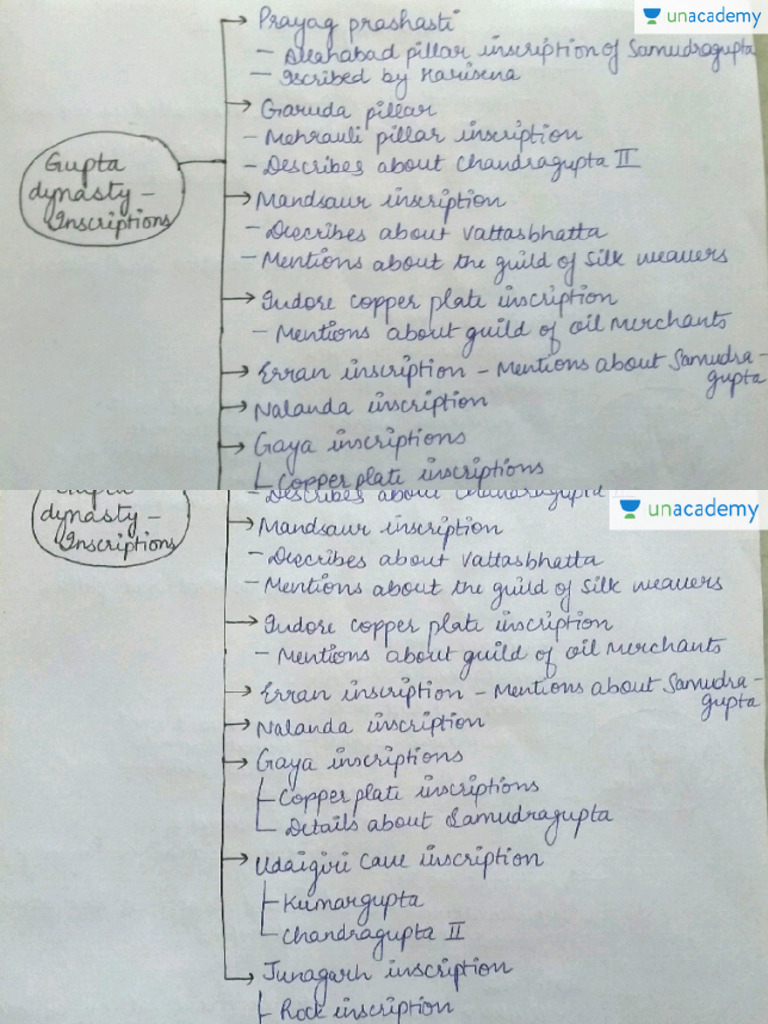 unacademy
Prayag prashasti
- Allahabad pillar inscription of Samudragupta
- Iscribed by Harisena
Garuda pillar
- Mehrauli pillar inscription
- Describes about Chandragupta II
Gupta
dynasty -
Inscriptions
Mandsaur inscription
- Describes about Vattasbhatta
- Mentions about the guild of silk weavers
Indore copper plate inscription
- Mentions about guild of oil merchants
Erran inscription - Mentions about Samudra-
gupta
Nalanda inscription
Gaya inscriptions
Copper plate inscriptions
- Describes about Chandragupta II
unacademy
Gupta
dynasty -
Inscriptions
Mandsaur inscription
- Describes about Vattasbhatta
- Mentions about the guild of silk weavers
Indore copper plate inscription
- Mentions about guild of oil merchants
Erran inscription - Mentions about Samudra-
gupta
Nalanda inscription
Gaya inscriptions
Copper plate inscriptions
Details about Samudragupta
Udaigiri cave inscription
Kumargupta
Chandragupta II
Junagarh inscription
Rock inscription